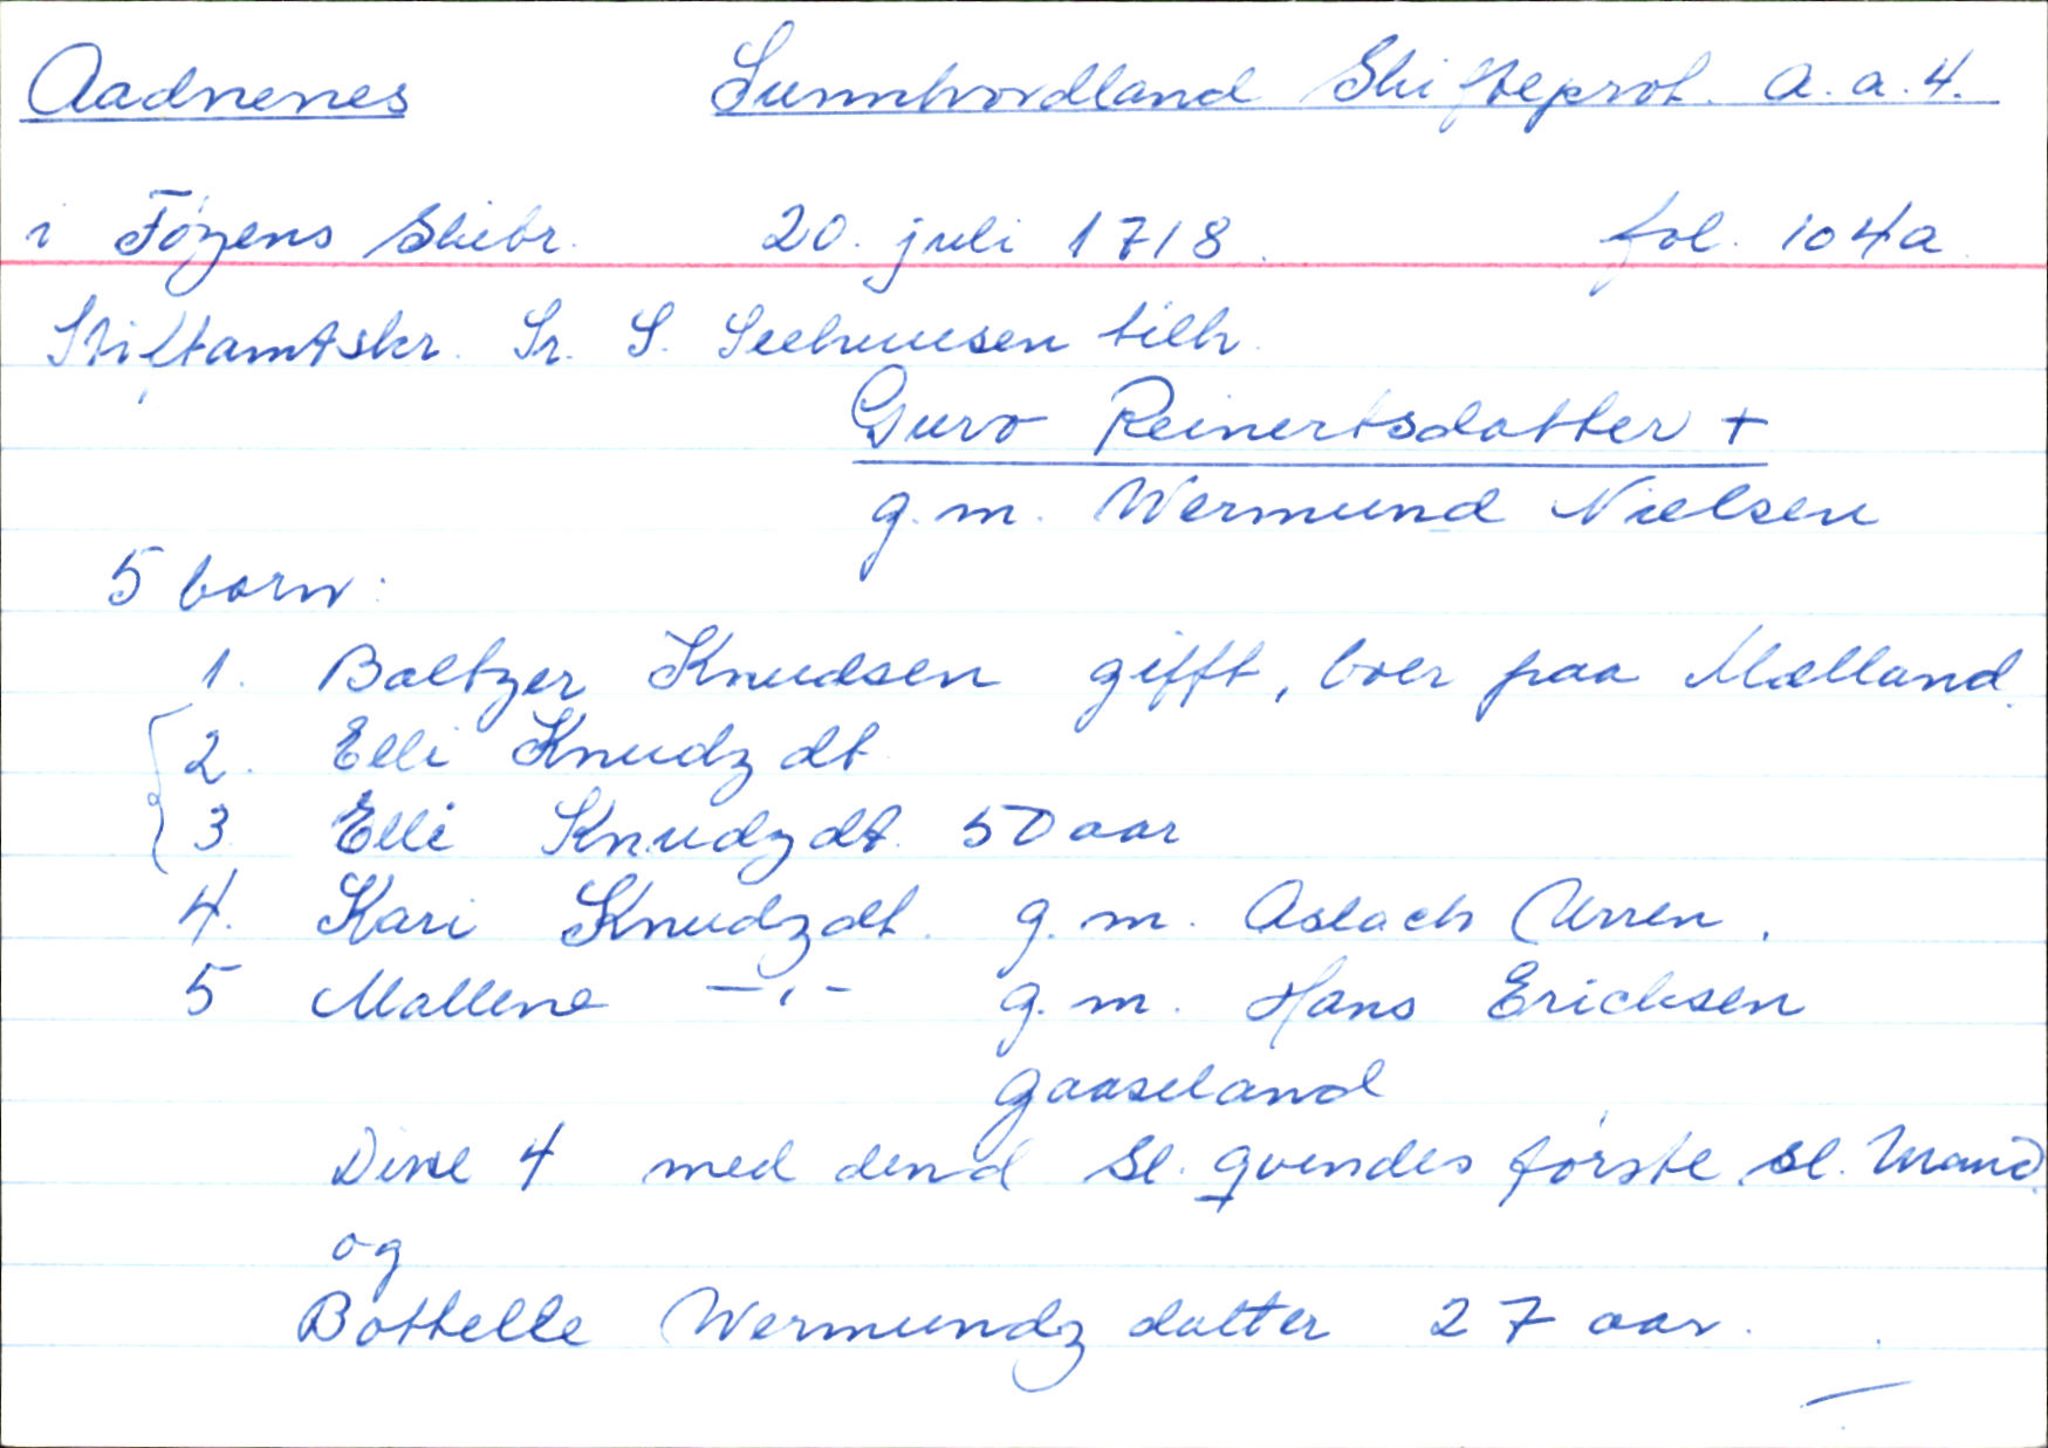 Aadnenes Sunnhordland Skifteprot. A.a.4.
i Föyens Skibr. 20. juli 1718. fol. 104a
Stiftamtskr. Sr. S. Seehuusen tilh.
Guro Reinertsdatter +
g.m. Wermund Nielsen
5 born:
1. Baltzer Knudsen gifft, boer paa Mælland.
2. Elli Knudzdt
3 Elli Knudzdt. 50 aar
4. Kari Knudzdt. g.m. Aslach Urren.
5 Mallene -"- g.m. Hans Erichsen
Gaaseland
Disse 4 med dend Sl. qvendes förste sl. Mand.
og
Bottelle Wermundz datter 27 aar.